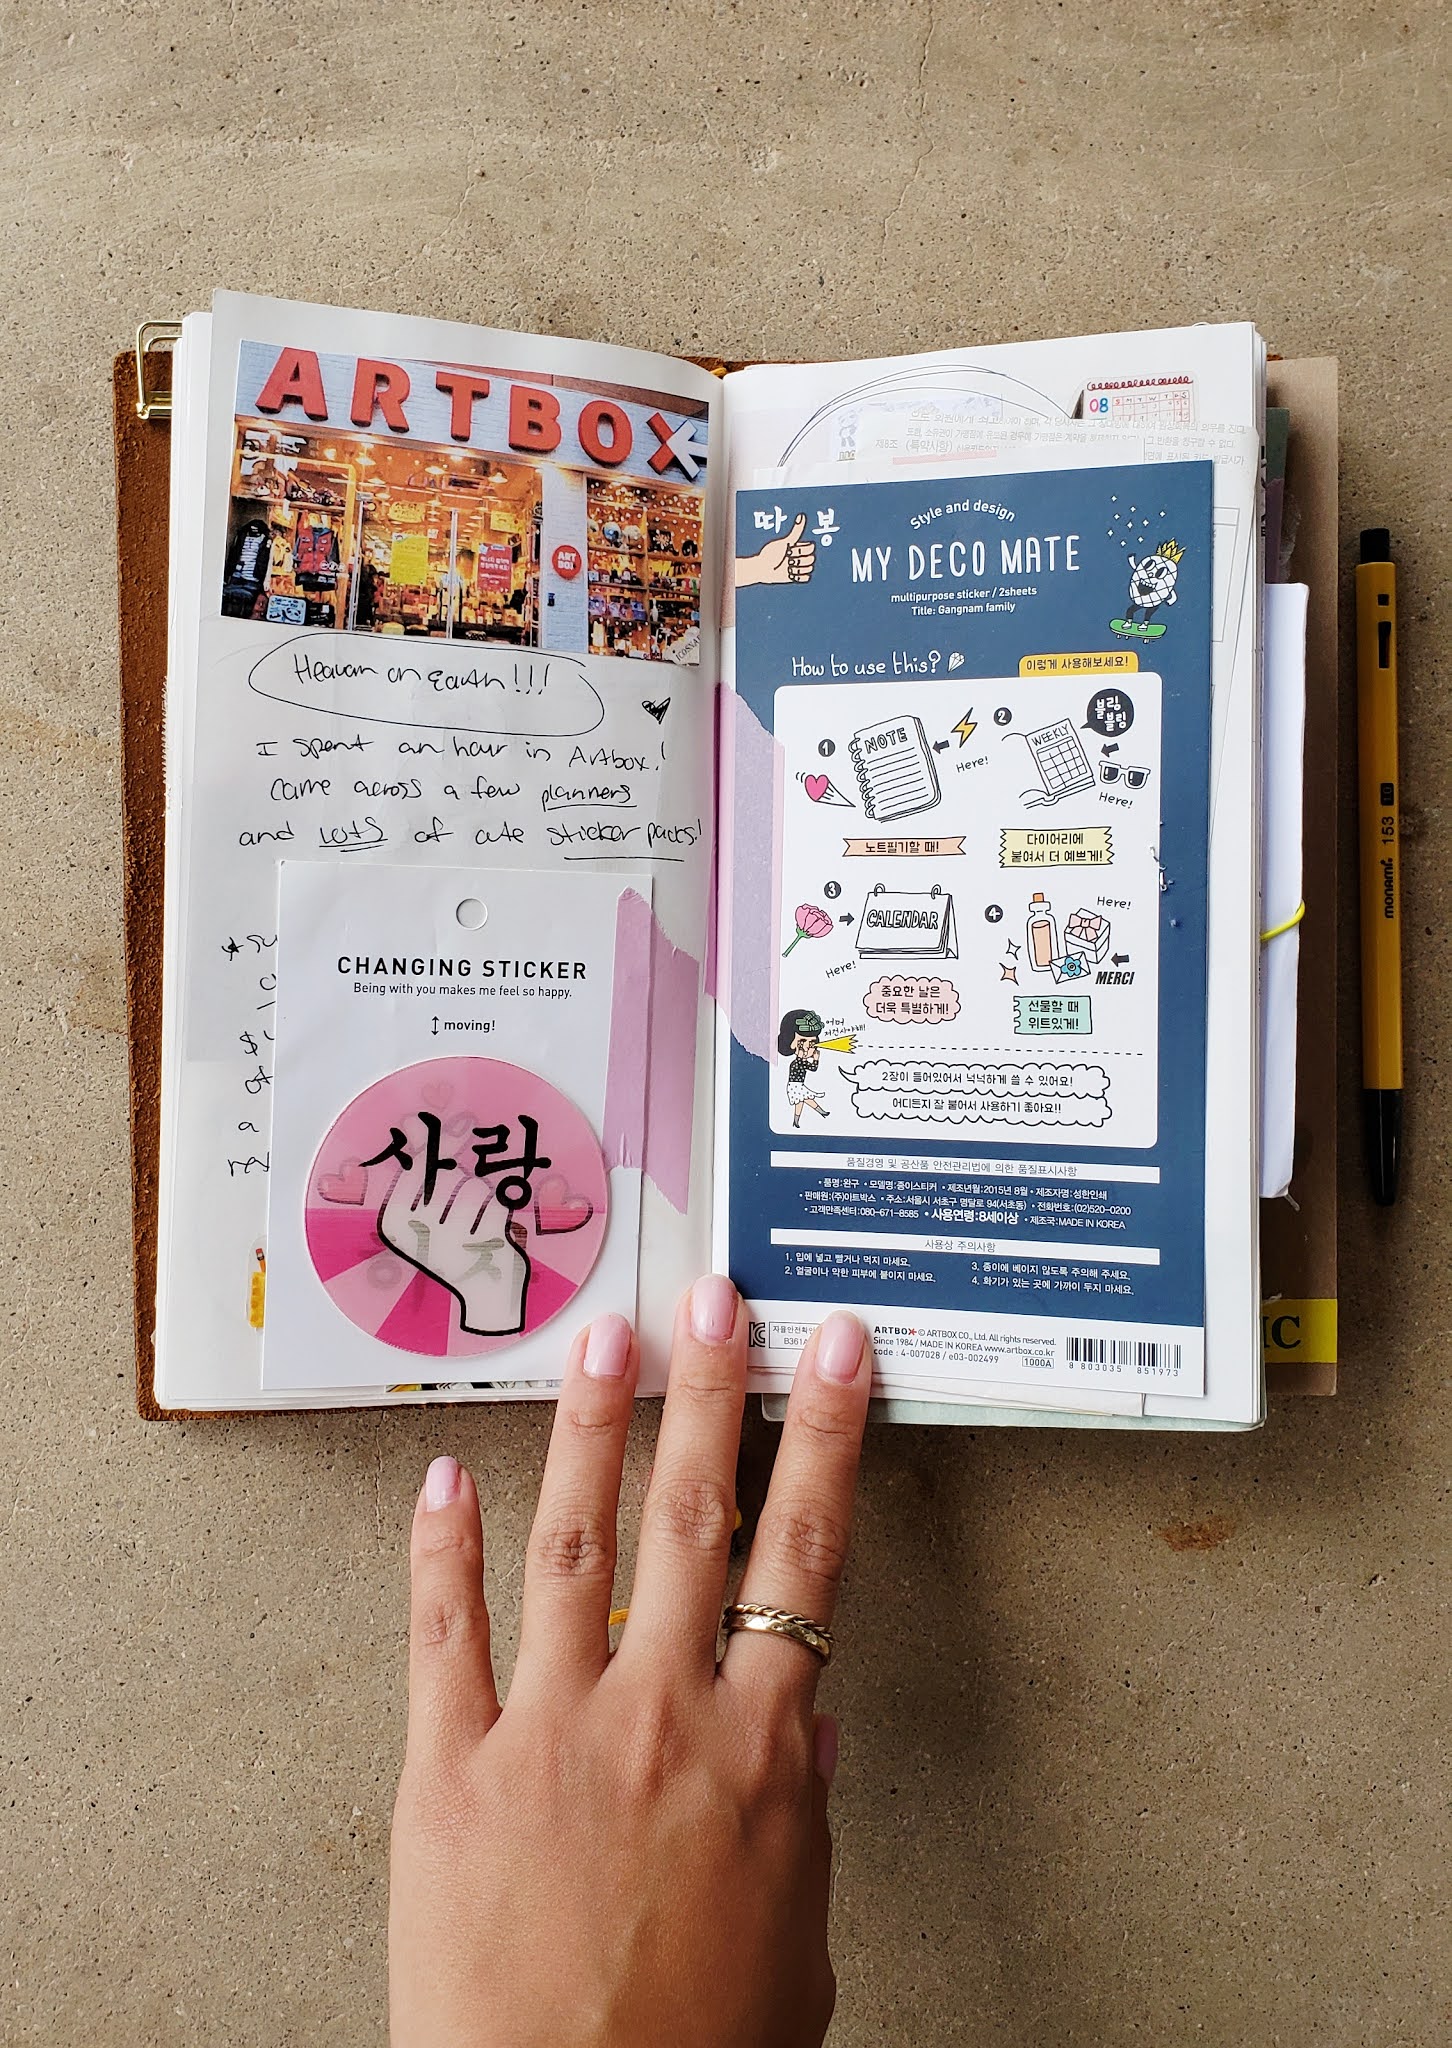 ARTBOX
ART
BOX
Heaven on Earth!!!
I spent an hour in Artbox!
came across a few planners
and lots of cute sticker packs!
CHANGING STICKER
Being with you makes me feel so happy.
moving!
사랑
08
S M T W T F S
제8조 (특약사항)
따봉
Style and design
MY DECO MATE
multipurpose sticker / 2sheets
Title: Gangnam family
How to use this?
이렇게 사용해보세요!
1
NOTE
Here!
노트필기할 때!
2
WEEKLY
블링
블링
Here!
다이어리에
붙여서 더 예쁘게!
3
CALENDAR
Here!
중요한 날은
더욱 특별하게!
4
Here!
MERCI
선물할 때
위트있게!
어머
저건사야해!
2장이 들어있어서 넉넉하게 쓸 수 있어요!
어디든지 잘 붙어서 사용하기 좋아요!!
품질경영 및 공산품 안전관리법에 의한 품질표시사항
•품명:완구 •모델명:종이스티커 •제조년월:2015년 8월 •제조자명:성한인쇄
•판매원:(주)아트박스 •주소:서울시 서초구 명달로 94(서초동) •전화번호:(02)520-0200
•고객만족센터:080-671-8585 •사용연령:8세이상 •제조국:MADE IN KOREA
사용상 주의사항
1. 입에 넣고 빨거나 먹지 마세요.
2. 얼굴이나 약한 피부에 붙이지 마세요.
3. 종이에 베이지 않도록 주의해 주세요.
4. 화기가 있는 곳에 가까이 두지 마세요.
자율안전확인
B361A
ARTBOX © ARTBOX CO., Ltd. All rights reserved.
Since 1984 / MADE IN KOREA www.artbox.co.kr
code : 4-007028 / e03-002499
1000A
8 803035 851973
IC
monami 153